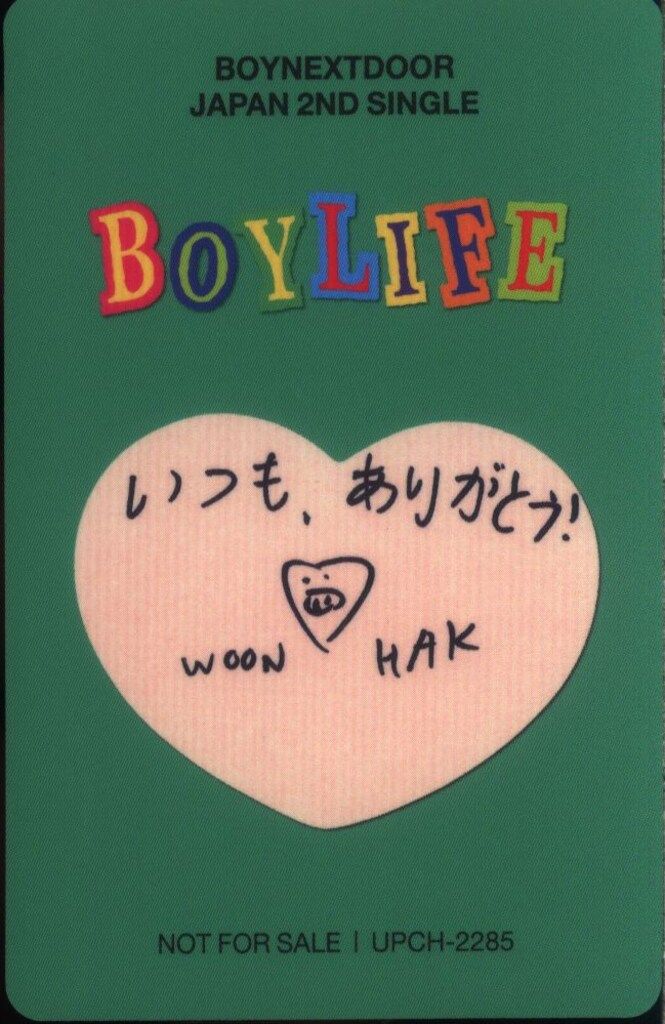 BOYNEXTDOOR
JAPAN 2ND SINGLE
BOYLIFE
いつも、ありがとう!
WOON HAK
NOT FOR SALE | UPCH-2285